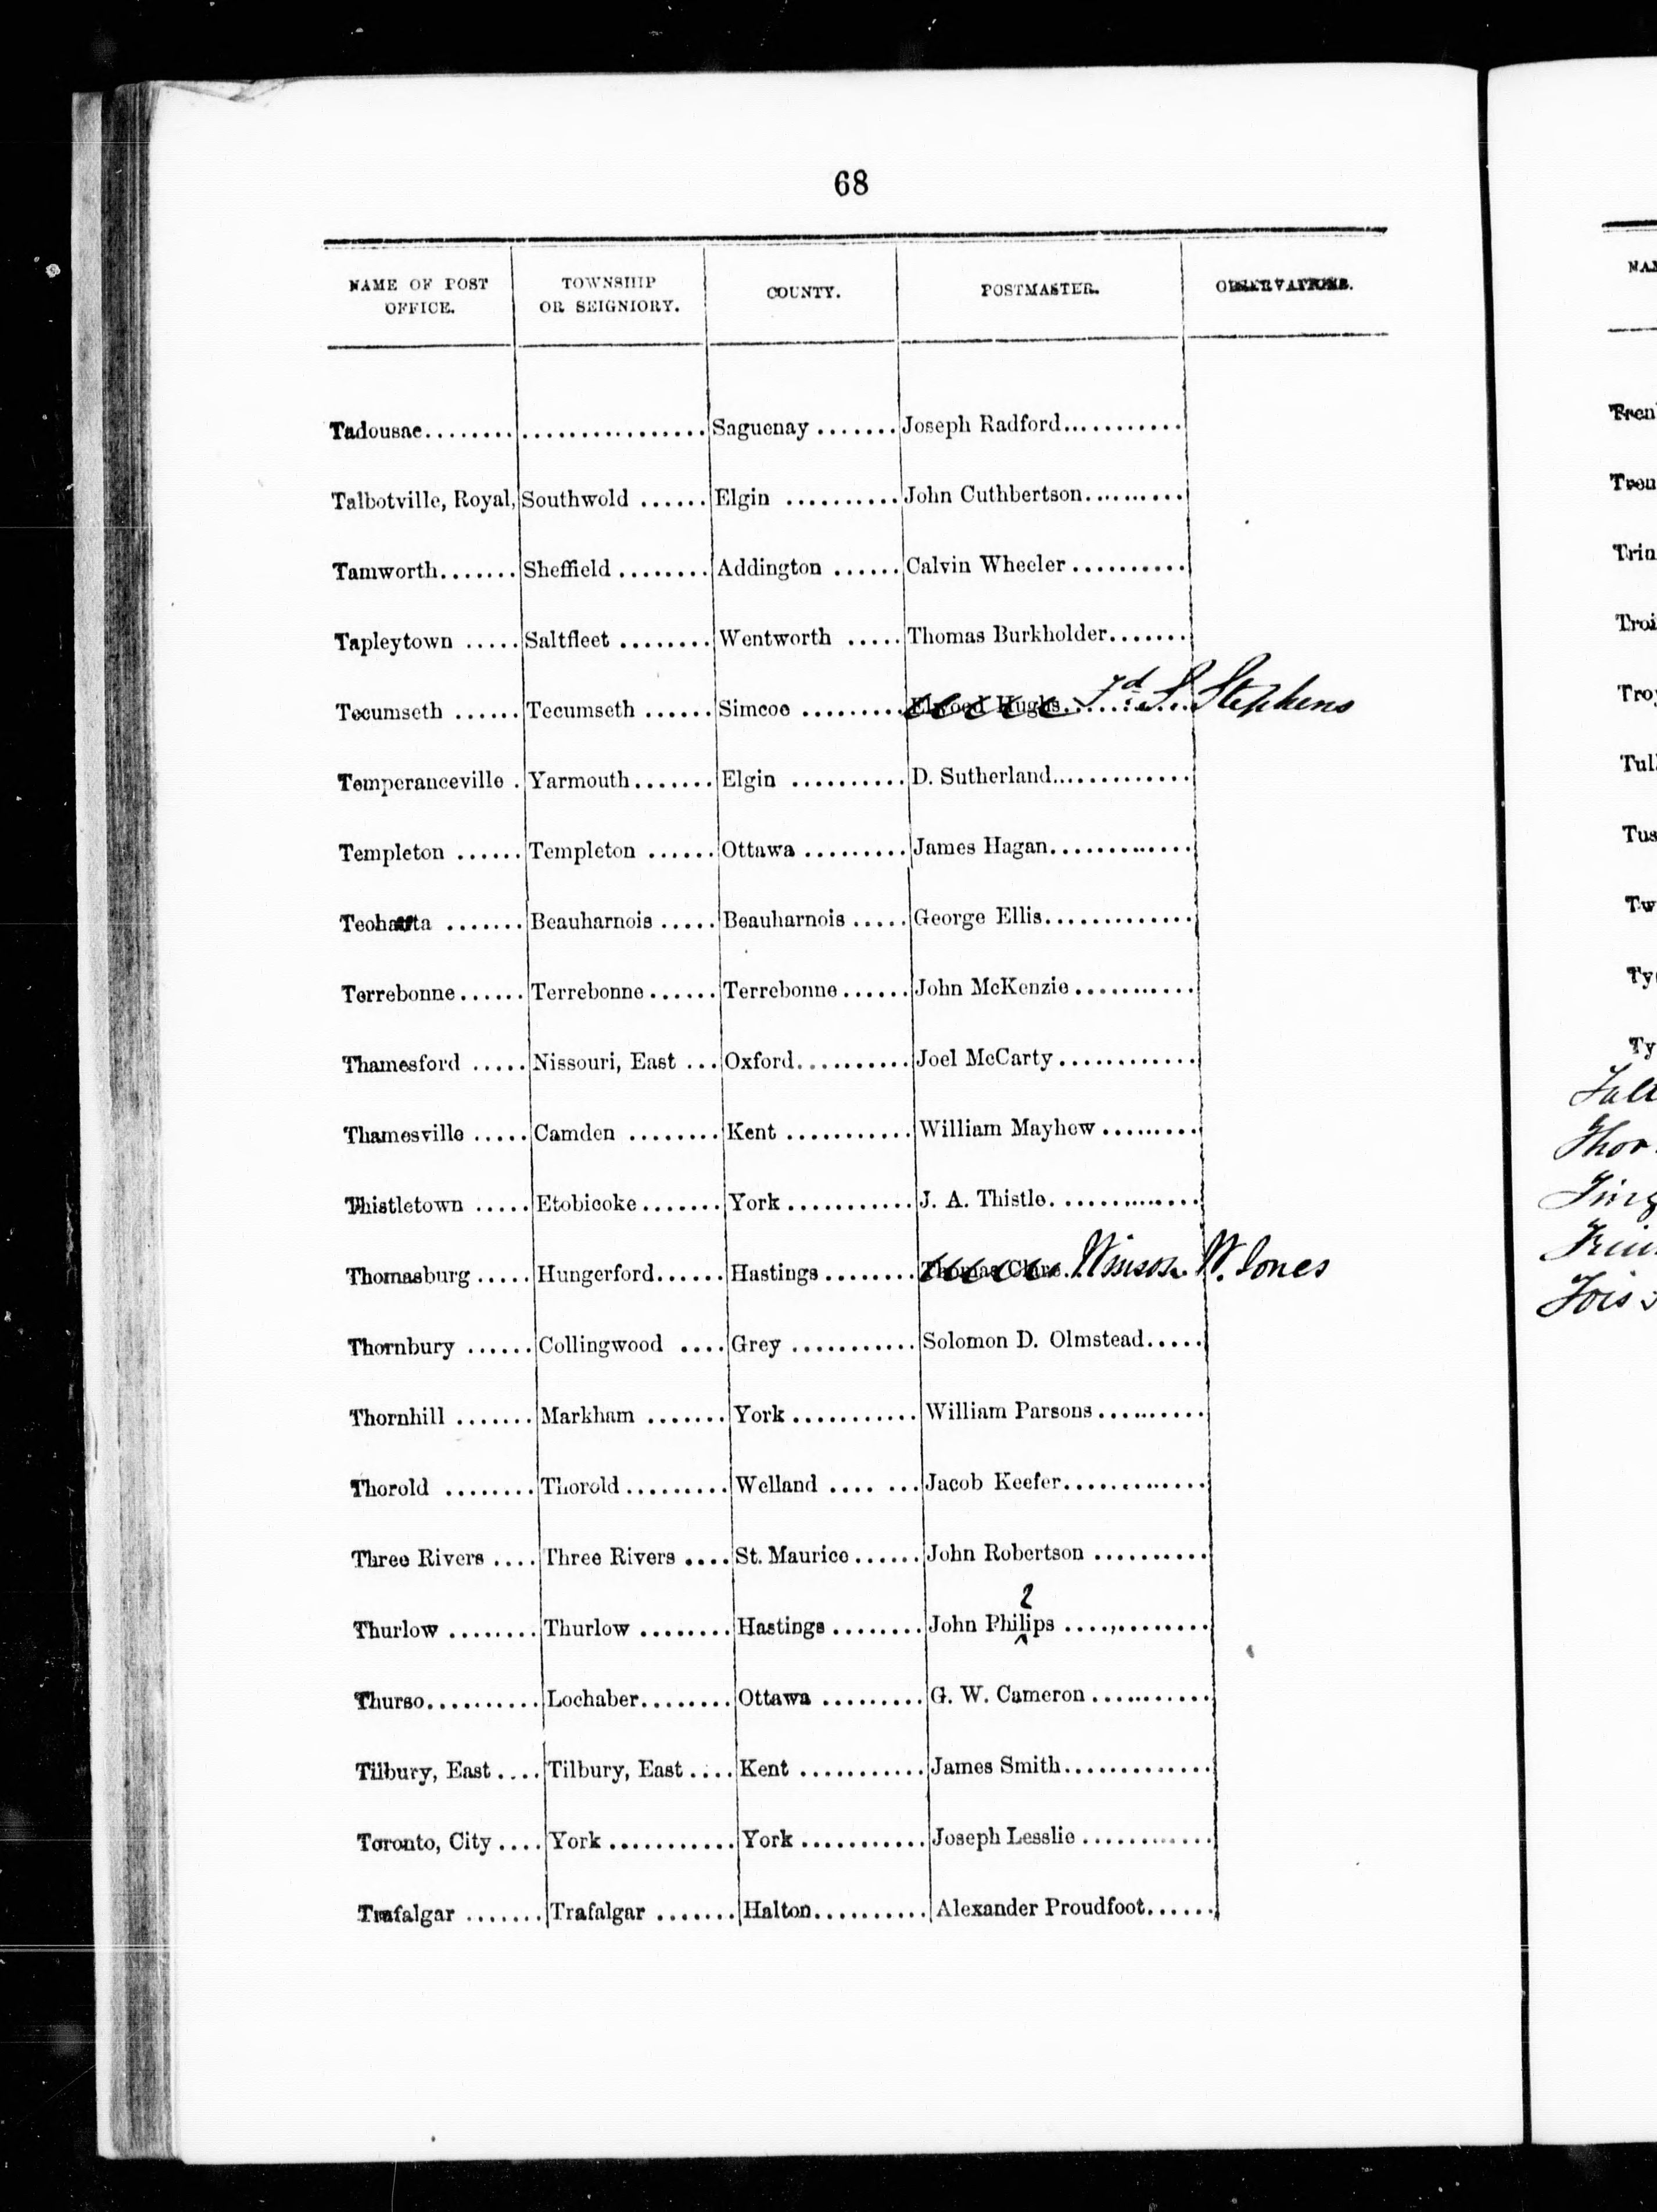 68
NAME OF POST OFFICE. TOWNSHIP OR SEIGNIORY. COUNTY. POSTMASTER. OBSERVATIONS.
Tadousac........ ................ Saguenay ....... Joseph Radford...........
Talbotville, Royal, Southwold ...... Elgin .......... John Cuthbertson..........
Tamworth....... Sheffield ........ Addington ...... Calvin Wheeler ..........
Tapleytown ..... Saltfleet ........ Wentworth ..... Thomas Burkholder.......
Tecumseth ...... Tecumseth ...... Simcoe ......... Elwood Hughs. Fd. S. Stephens
Temperanceville . Yarmouth....... Elgin .......... D. Sutherland.............
Templeton ...... Templeton ...... Ottawa ......... James Hagan.............
....... Beauharnois ..... Beauharnois ..... George Ellis.............
Terrebonne...... Terrebonne...... Terrebonne...... John McKenzie ..........
Thamesford ..... Nissouri, East ... Oxford.......... Joel McCarty ............
Thamesville ..... Camden ........ Kent ........... William Mayhew .........
Thistletown ..... Etobicoke....... York ........... J. A. Thistle.............
Thomasburg ..... Hungerford...... Hastings ........ Thomas W. Jones
Thornbury ...... Collingwood .... Grey ........... Solomon D. Olmstead.....
Thornhill ....... Markham ....... York ........... William Parsons ..........
Thorold ........ Thorold ......... Welland .... ... Jacob Keefer.............
Three Rivers .... Three Rivers .... St. Maurice ...... John Robertson ..........
2
Thurlow ........ Thurlow ........ Hastings ........ John Philips ....,........
Thurso.......... Lochaber........ Ottawa ......... G. W. Cameron ...........
Tilbury, East .... Tilbury, East .... Kent ........... James Smith.............
Toronto, City .... York ........... York ........... Joseph Lesslie ............
Trafalgar ....... Trafalgar ....... Halton.......... Alexander Proudfoot......